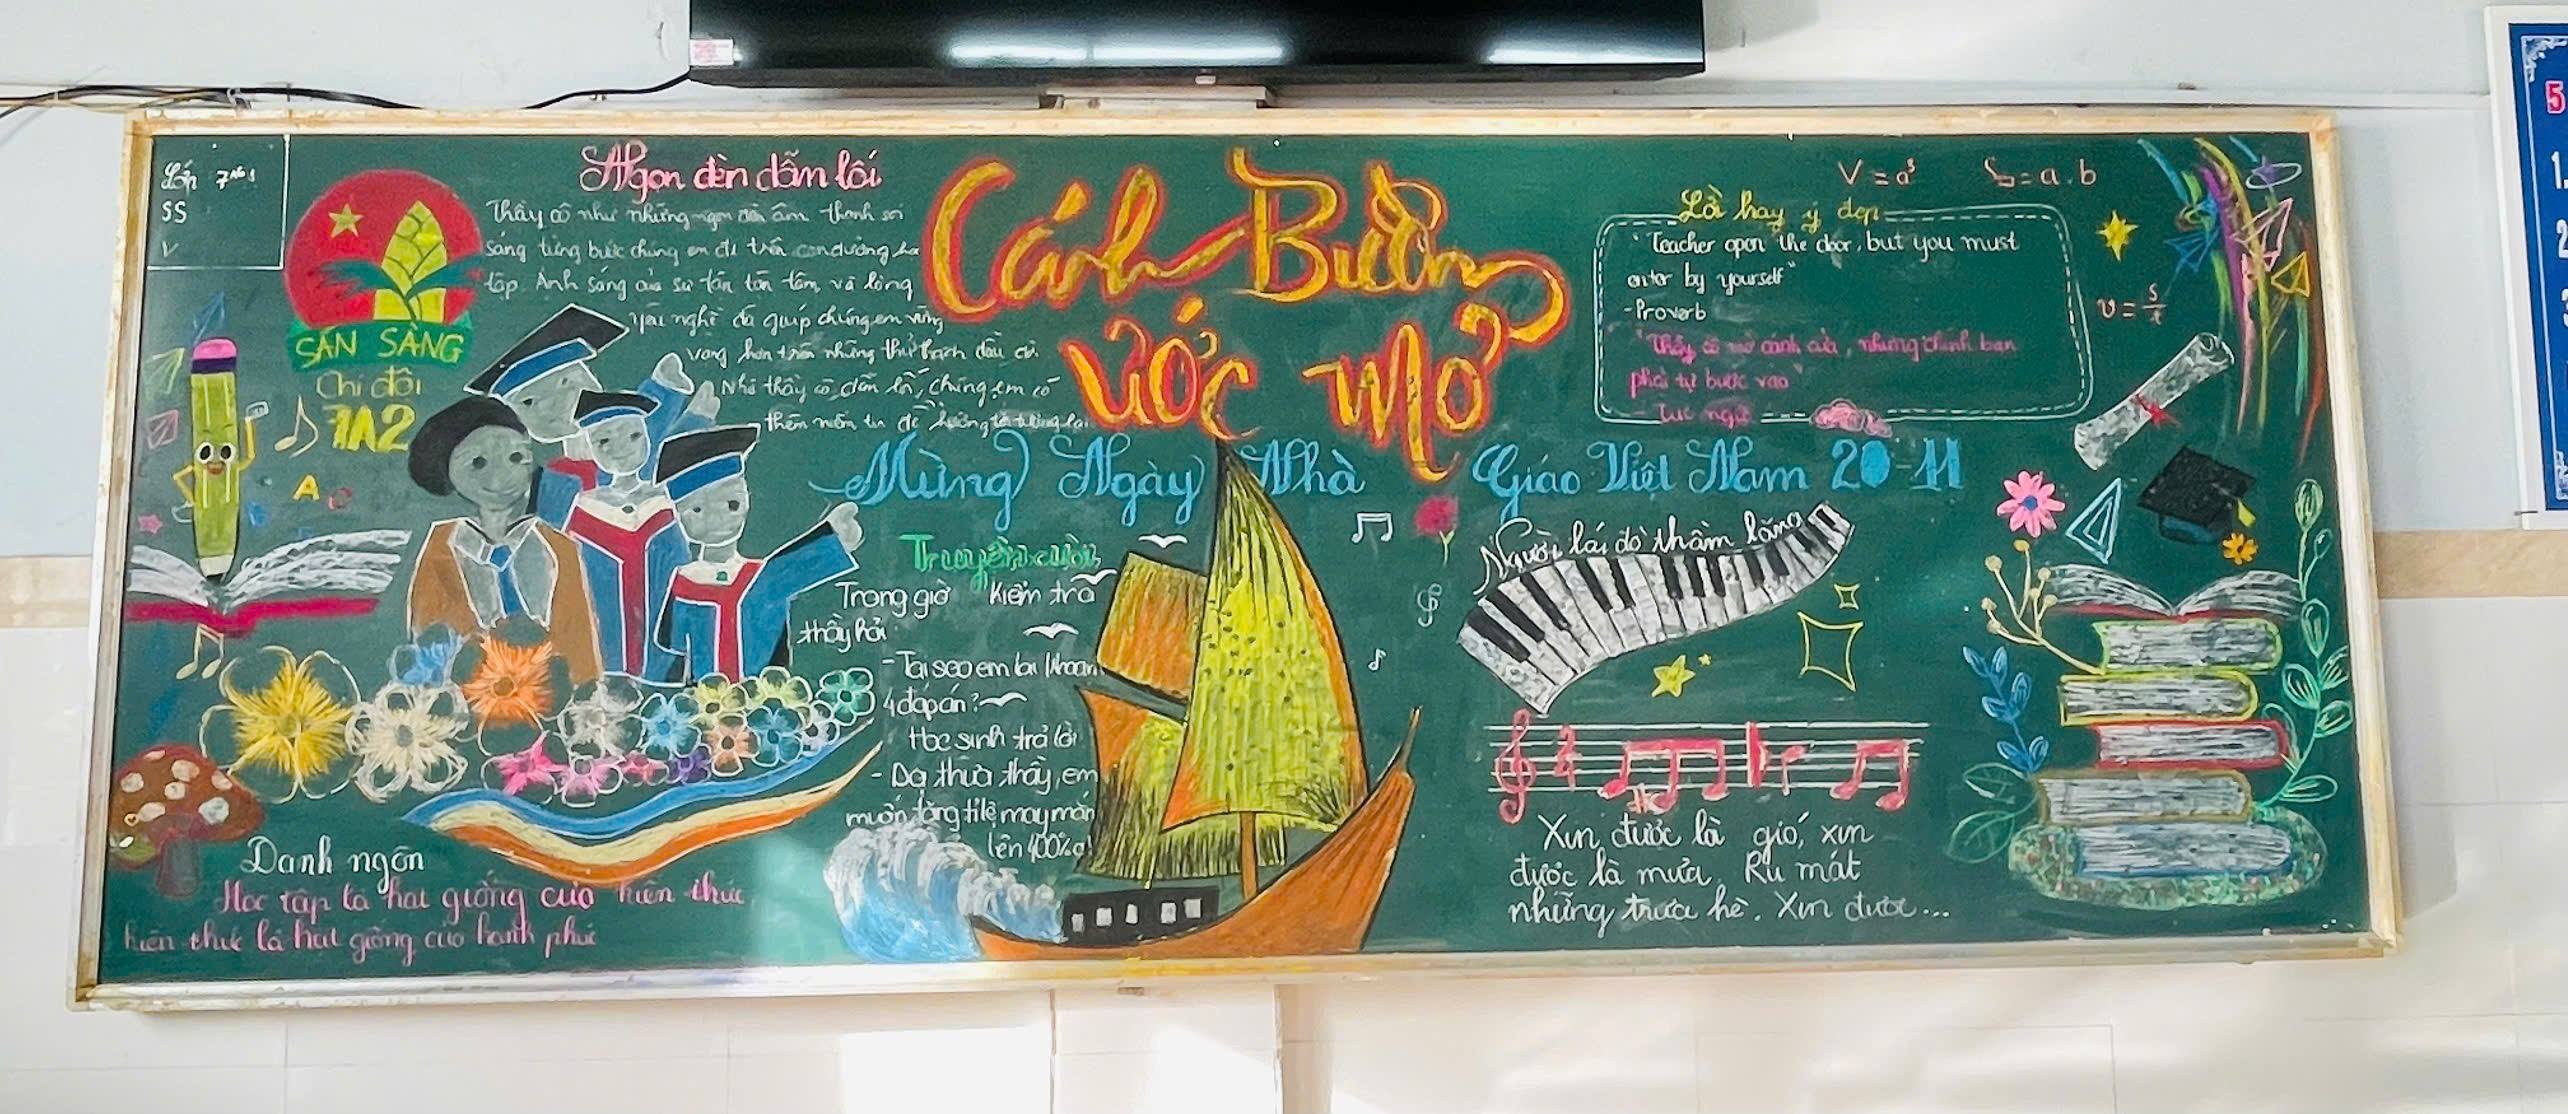 Lớp 7A2
SS
V
SẴN SÀNG
Chi đội
7A2
A
Ngọn đèn dẫn lối
Thầy cô như những ngọn đèn âm thầm soi
sáng từng bước chúng em đi trên con đường học
tập. Ánh sáng của sự tận tâm và lòng
yêu nghề đã giúp chúng em vững
vàng hơn trên những thử thách đầu đời
Nhờ thầy cô dẫn lối, chúng em có
thêm niềm tin để hướng tới tương lai
Cánh Buồm
ước mơ
Mừng Ngày Nhà Giáo Việt Nam 20-11
Truyện cười
Trong giờ kiểm tra
thầy hỏi
- Tại sao em lại khoanh
4 đáp án?
Học sinh trả lời
- Dạ thưa thầy, em
muốn tăng tỉ lệ may mắn
lên 100% ạ!
Danh ngôn
Học tập là hạt giống của kiến thức
kiến thức là hạt giống của hạnh phúc
V = a³
S = a.b
Lời hay ý đẹp
"Teacher open the door, but you must
enter by yourself"
- Proverb
"Thầy cô mở cánh cửa, nhưng chính bạn
phải tự bước vào"
- Tục ngữ
v = s/t
Người lái đò thầm lặng
Xin được là gió, xin
được là mưa. Ru mát
những trưa hè. Xin được...
5
1.
2
3